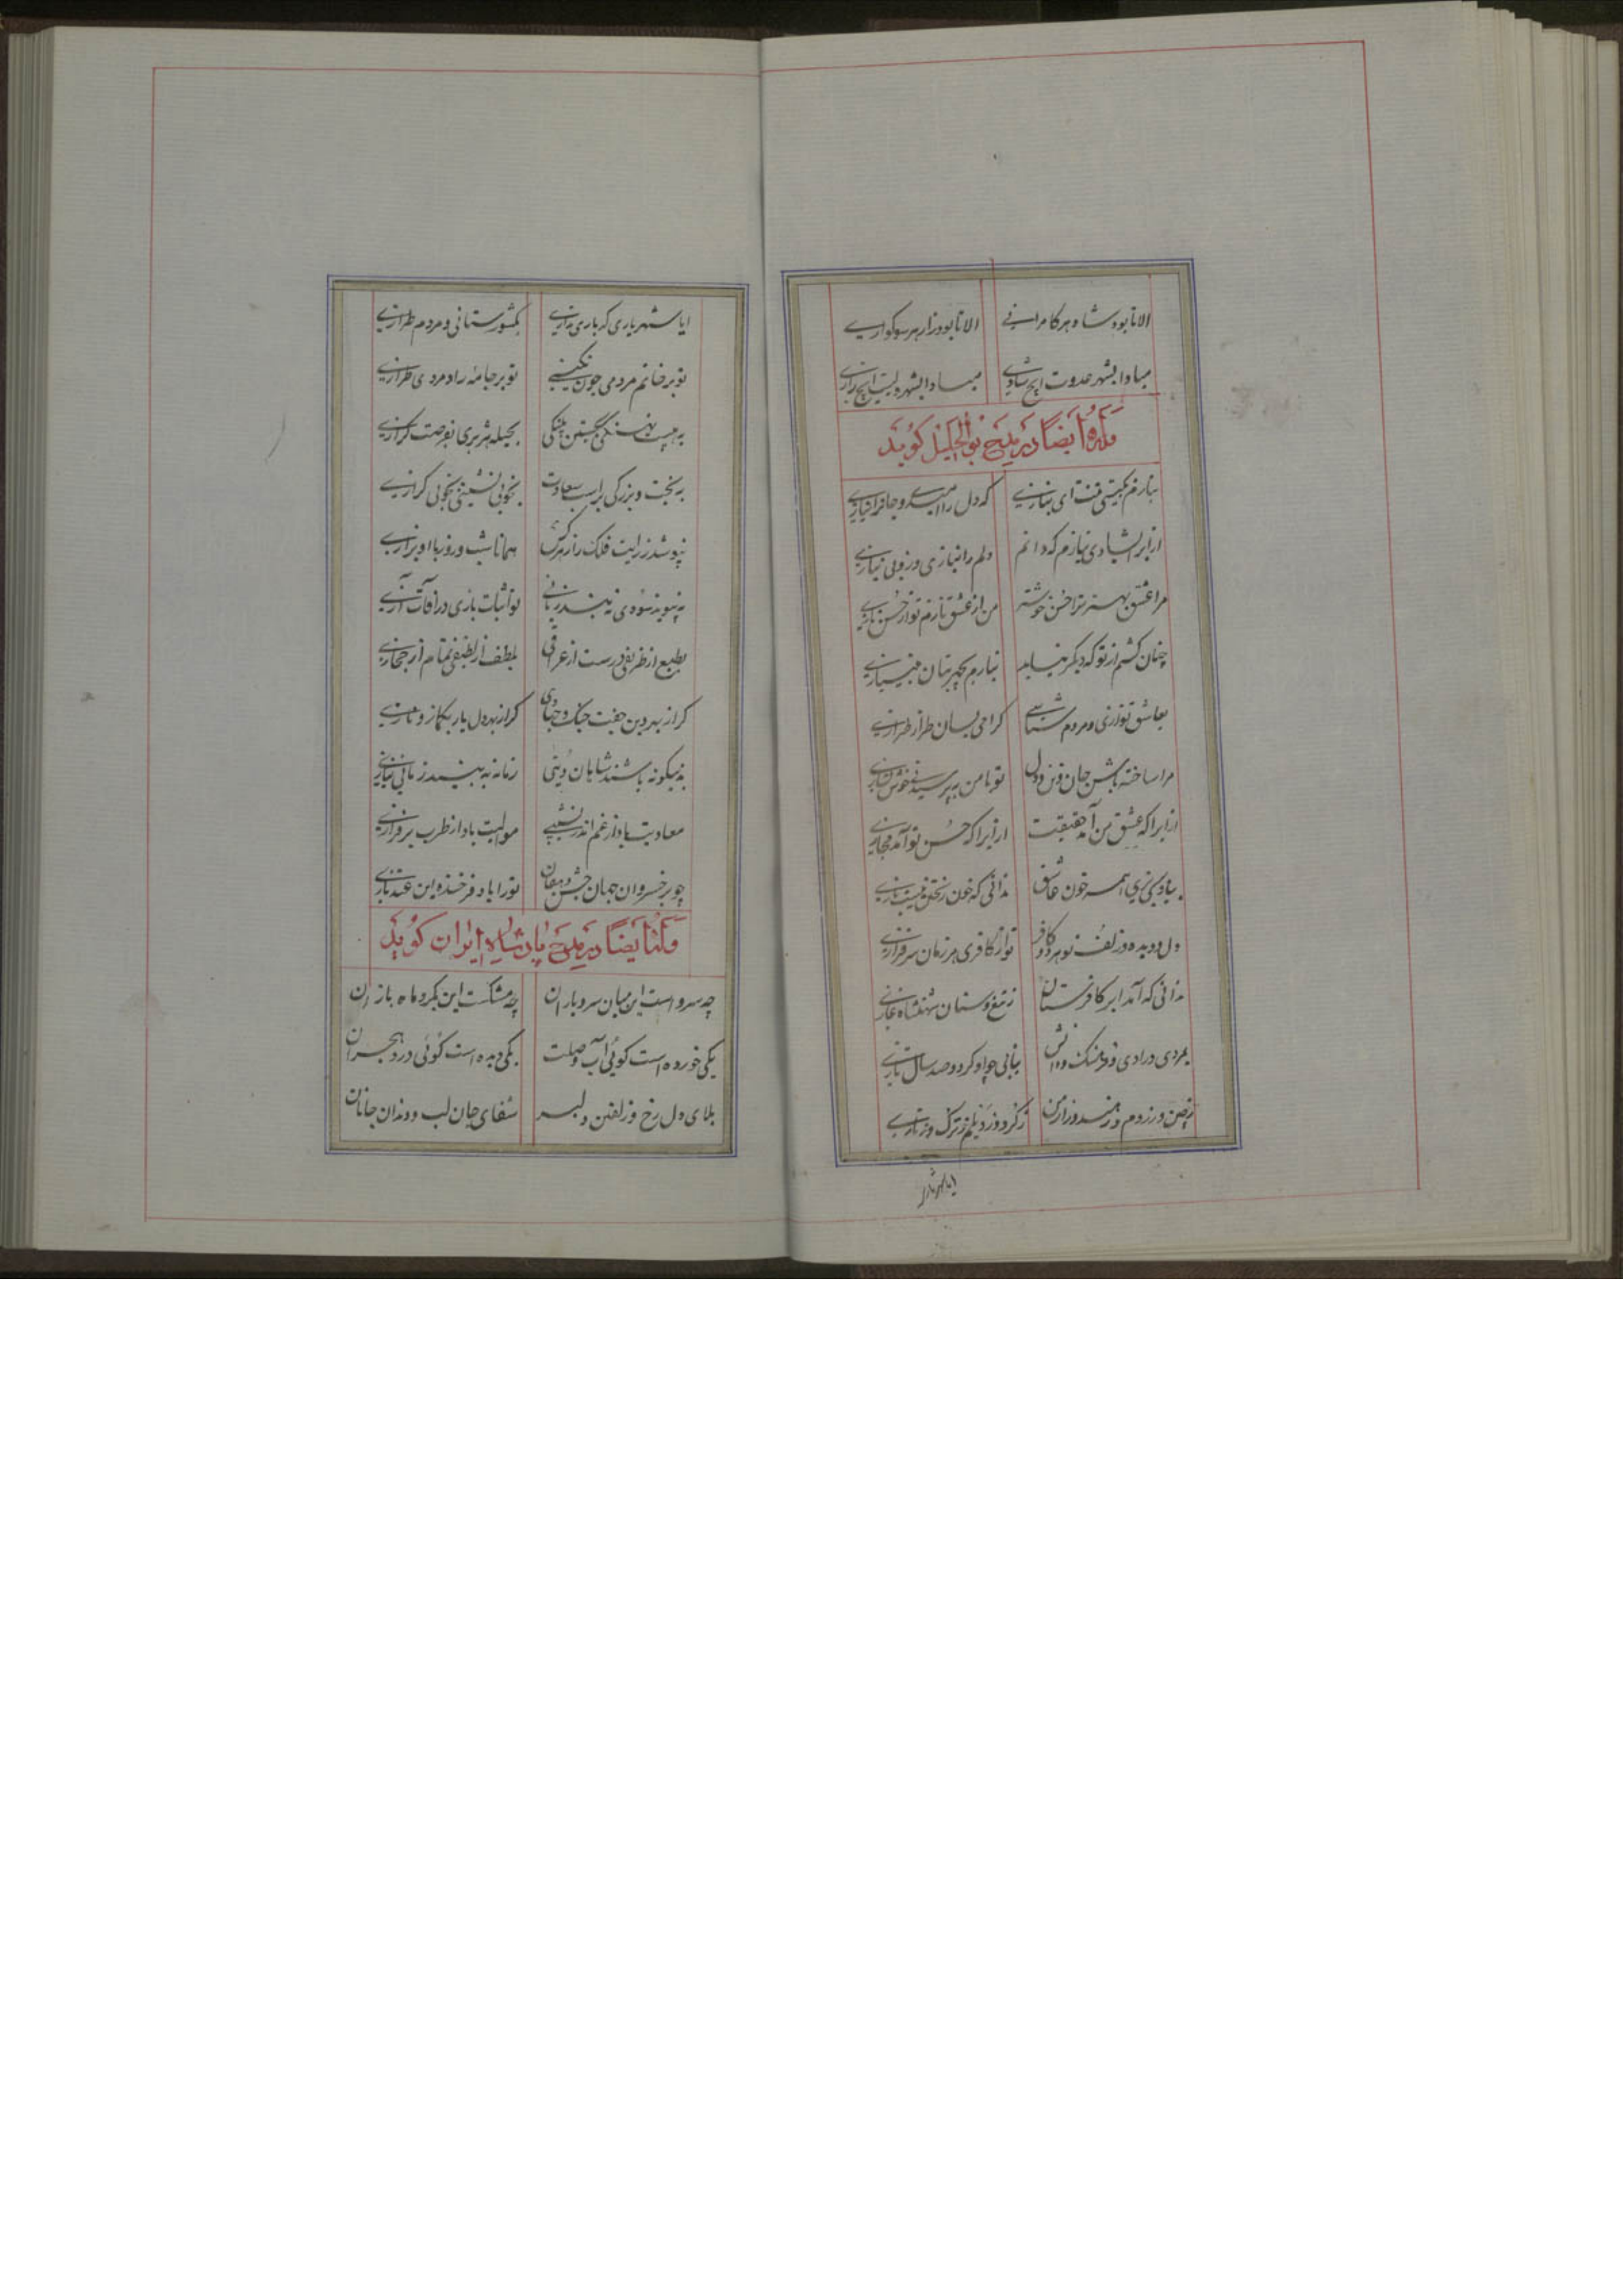 الا تا بود شاد هر کامرانی الا تا بود زار هر سوکواری
مبادا بشهر عدوت ایچ شادی مبادا بشهر ولیت ایچ زاری
وله ایضا در مدح بوالخلیل کوید
بنازم بکیتی فتنه ای بنازی که دل را امیدی و جانرا نیازی
ازایرا بشادی نیازم که دانم دلم را نیازی و زوبی نیازی
مرا عشق بهتر ترا حسن خوشتر من از عشق نازم تو از حسن نازی
چنان کشم از تو که دیکر نیاید نیارم بچهر بتان
بعاشق نوازی و مردم شناسی کرامی بسان طراز طرازی
مرا ساخته باش جان و تن و دل تو با من به پرسیدنی خوش نسازی
ازایرا که عشق من آمد حقیقت ازایرا که حسن تو آمد مجازی
ببازی بریزی همه خون عاشق ندانی که خون ریختن نیست بازی
دل و دیده و زلف تو هر دو کافر تو از کافری هر زمان سرفرازی
ندانی که آمد ابر کافرستان ز تیغ و سنان شهنشاه غازی
بمردی و رادی و فرهنک و دانش نیابی چو او کر دو صد سال تازی
ز چین و ز روم و ز هند و ز ارمن ز کرد و ز دیلم ز ترک و ز تازی
ایا شهریاری که یاری نداری بکشورستانی و مردم طرازی
تو بر خاتم مردمی چون نکینی تو بر جامهٔ رادمردی طرازی
به هیبت نهنکی بجستن پلنکی بحیله هژبری بفرصت کرازی
به بخت و بزرکی بر اسب سعادت بخوبی نشینی بخوبی کرازی
نپوشد ز رایت فلک راز هرکز همانا شب و روز با او برازی
به نیو ندسودی نه بیند زیانی تو اثبات یاری در آفات آزی
بطبع از ظریفی درست از عراقی بلطف از لطیفی تمام از حجازی
کر از بهر دین جفت جنک و جهادی کر از بهر دل یار بکماز و نازی
نه نیکونه باشند شاهان دینی زمانه نه بیند زمانی نیازی
معادیت باد از غم اندر نشیبی موالیت باد از طرب بر فرازی
چو بر خسروان جهان جشن دهقان تو را باد فرخنده این عید تازی
وله ایضا در مدح پادشاه ایران کوید
چه سرو است این میان سرو یاران چه مشکست این بکرد ماه بازان
یکی خورده است کوئی آب وصلت یکی دیده است کوئی درد هجران
بلای دل رخ و زلفین دلبر شفای جان لب و دندان جانان